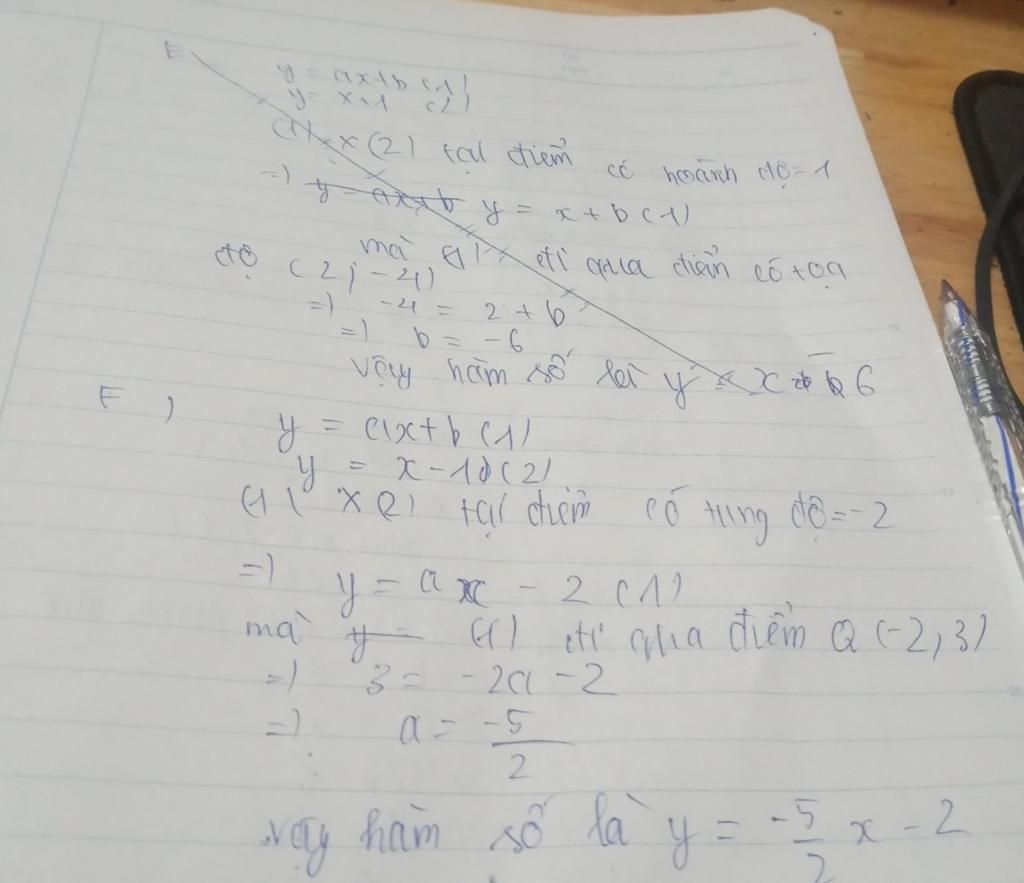 E
y = ax+b (1)
y = x+1 (2)
(1) x (2) tại điểm có hoành độ = 1
=) y = ax+b y = x + b (1)
mà (1) đi qua điểm có tọa
độ (2; -4)
=) -4 = 2 + b
=) b = -6
vậy hàm số là y = x - 6
F)
y = ax+b (1)
y = x-10 (2)
(1) x (2) tại điểm có tung độ = -2
=) y = ax - 2 (1)
mà y = (1) đi qua điểm Q (-2, 3)
=) 3 = -2a - 2
=) a = -5/2
vậy hàm số là y = -5/2 x - 2